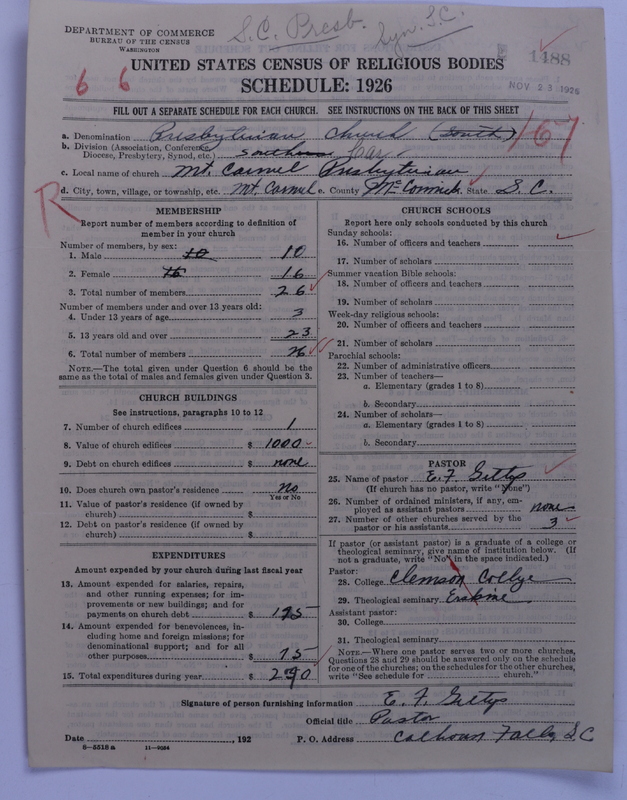 DEPARTMENT OF COMMERCE
BUREAU OF THE CENSUS
WASHINGTON
S.C. Presb.
Syn. S.C.
1488
6 6
UNITED STATES CENSUS OF RELIGIOUS BODIES
SCHEDULE: 1926
NOV 23 1926
FILL OUT A SEPARATE SCHEDULE FOR EACH CHURCH. SEE INSTRUCTIONS ON THE BACK OF THIS SHEET
167
a. Denomination Presbyterian Church (South)
b. Division (Association, Conference, Diocese, Presbytery, Synod, etc.) Southern Car
c. Local name of church Mt. Carmel Presbyterian
R
d. City, town, village, or township, etc. Mt. Carmel e. County McCormick State S. C.
MEMBERSHIP
Report number of members according to definition of
member in your church
Number of members, by sex:
1. Male 10 10
2. Female 16 16
3. Total number of members 26
Number of members under and over 13 years old:
4. Under 13 years of age 3
5. 13 years old and over 23
6. Total number of members 26
NOTE.—The total given under Question 6 should be the
same as the total of males and females given under Question 3.
CHURCH BUILDINGS
See instructions, paragraphs 10 to 12
7. Number of church edifices 1
8. Value of church edifices $ 1000
9. Debt on church edifices $ none
10. Does church own pastor's residence No
Yes or No
11. Value of pastor's residence (if owned by
church) $
12. Debt on pastor's residence (if owned by
church) $
EXPENDITURES
Amount expended by your church during last fiscal year
13. Amount expended for salaries, repairs,
and other running expenses; for im-
provements or new buildings; and for
payments on church debt $
14. Amount expended for benevolences, in-
cluding home and foreign missions; for
denominational support; and for all
other purposes $ 75
15. Total expenditures during year $
CHURCH SCHOOLS
Report here only schools conducted by this church
Sunday schools:
16. Number of officers and teachers
17. Number of scholars
Summer vacation Bible schools:
18. Number of officers and teachers
19. Number of scholars
Week-day religious schools:
20. Number of officers and teachers
21. Number of scholars
Parochial schools:
22. Number of administrative officers
23. Number of teachers—
a. Elementary (grades 1 to 8)
b. Secondary
24. Number of scholars—
a. Elementary (grades 1 to 8)
b. Secondary
PASTOR
25. Name of pastor E. F. Gettys
(If church has no pastor, write "None")
26. Number of ordained ministers, if any, em-
ployed as assistant pastors none
27. Number of other churches served by the
pastor or his assistants 3
If pastor (or assistant pastor) is a graduate of a college or
theological seminary, give name of institution below. (If
not a graduate, write "No" in the space indicated.)
Pastor:
28. College Clemson College
29. Theological seminary Erskine
Assistant pastor:
30. College
31. Theological seminary
NOTE.—Where one pastor serves two or more churches,
Questions 28 and 29 should be answered only on the schedule
for one of the churches; on the schedules for the other churches,
write "See schedule for church."
Signature of person furnishing information E. F. Gettys
Official title Pastor
Date , 192
P. O. Address Calhoun Falls S C
8—5518 a 11—9064